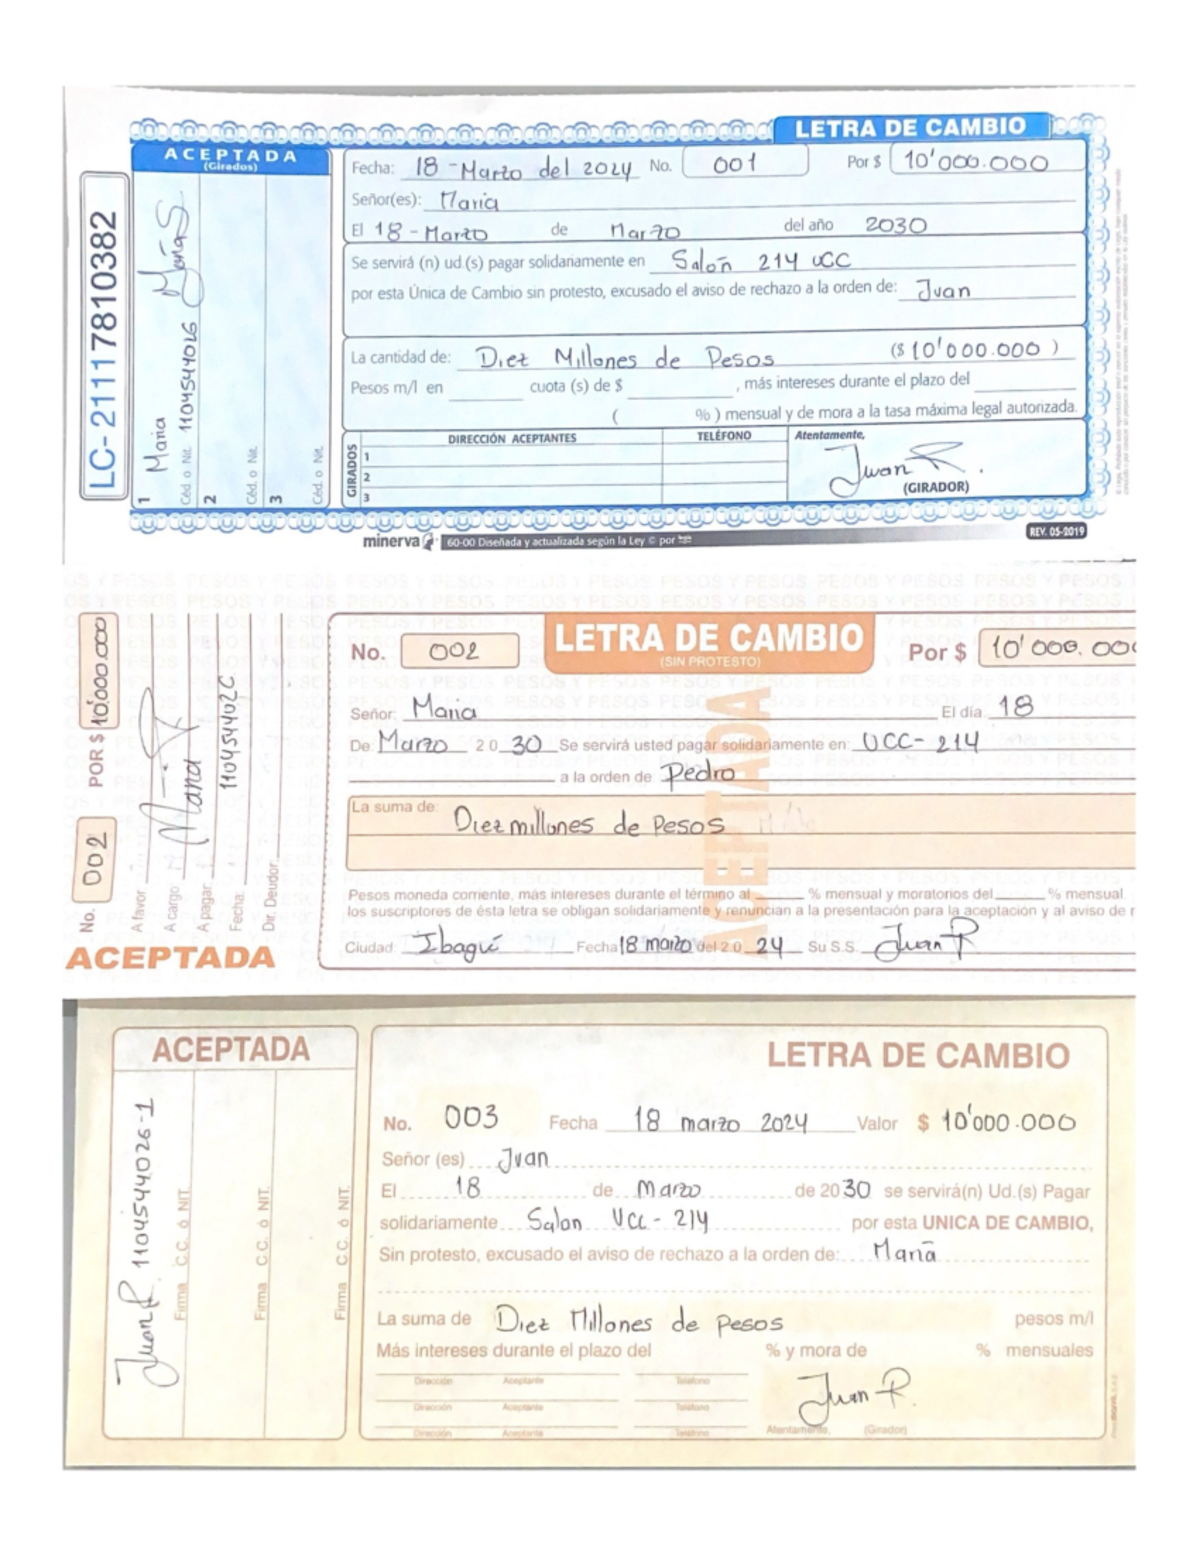 LETRA DE CAMBIO
ACEPTADA
(Girados)
Fecha: 18 - Marzo del 2024 No. 001 Por $ 10'000.000
Señor(es): Maria
El 18 - Marzo de Marzo del año 2030
Se servirá (n) ud.(s) pagar solidariamente en Salón 214 UCC
por esta Única de Cambio sin protesto, excusado el aviso de rechazo a la orden de: Juan
La cantidad de: Diez Millones de Pesos ($ 10'000.000 )
Pesos m/l en cuota (s) de $ , más intereses durante el plazo del
( % ) mensual y de mora a la tasa máxima legal autorizada.
GIRADOS
DIRECCIÓN ACEPTANTES
TELÉFONO
1
2
3
Atentamente,
Juan R.
(GIRADOR)
LC-21117810382
1 Maria
Céd. o Nit. 1104544016
Maria S
2
Céd. o Nit.
3
Céd. o Nit.
minerva 60-00 Diseñada y actualizada según la Ley © por
REV. 05-2019
No. 002
LETRA DE CAMBIO
(SIN PROTESTO)
Por $ 10'000.000
Señor: Maria El día 18
De: Marzo 20 30 Se servirá usted pagar solidariamente en: UCC- 214
a la orden de Pedro
La suma de: Diez millones de Pesos
ACEPTADA
Pesos moneda corriente, más intereses durante el término al % mensual y moratorios del % mensual
los suscriptores de ésta letra se obligan solidariamente y renuncian a la presentación para la aceptación y al aviso de r
Ciudad Ibagué Fecha 18 marzo del 20 24 Su S.S. Juan R
No. 002 POR $ 10'000.000
A favor
A cargo
A pagar: Maria
Fecha: 110454402C
Dir. Deudor
ACEPTADA
ACEPTADA
LETRA DE CAMBIO
No. 003 Fecha 18 marzo 2024 Valor $ 10'000.000
Señor (es) Juan
El 18 de Marzo de 20 30 se servirá(n) Ud.(s) Pagar
solidariamente Salon UCC - 214 por esta UNICA DE CAMBIO,
Sin protesto, excusado el aviso de rechazo a la orden de: Maria
La suma de Diez Millones de pesos pesos m/l
Más intereses durante el plazo del % y mora de % mensuales
Dirección Aceptante Teléfono
Dirección Aceptante Teléfono
Dirección Aceptante Teléfono
Juan R.
Atentamente, (Girador)
Juan R. 1104544026-1
Firma C.C. ó NIT.
Firma C.C. ó NIT.
Firma C.C. ó NIT.